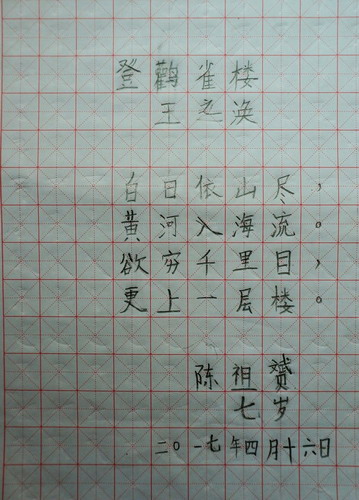 登鹳雀楼
王之涣
白日依山尽，
黄河入海流。
欲穷千里目，
更上一层楼。
陈祖赟
七岁
二〇一七年四月十六日